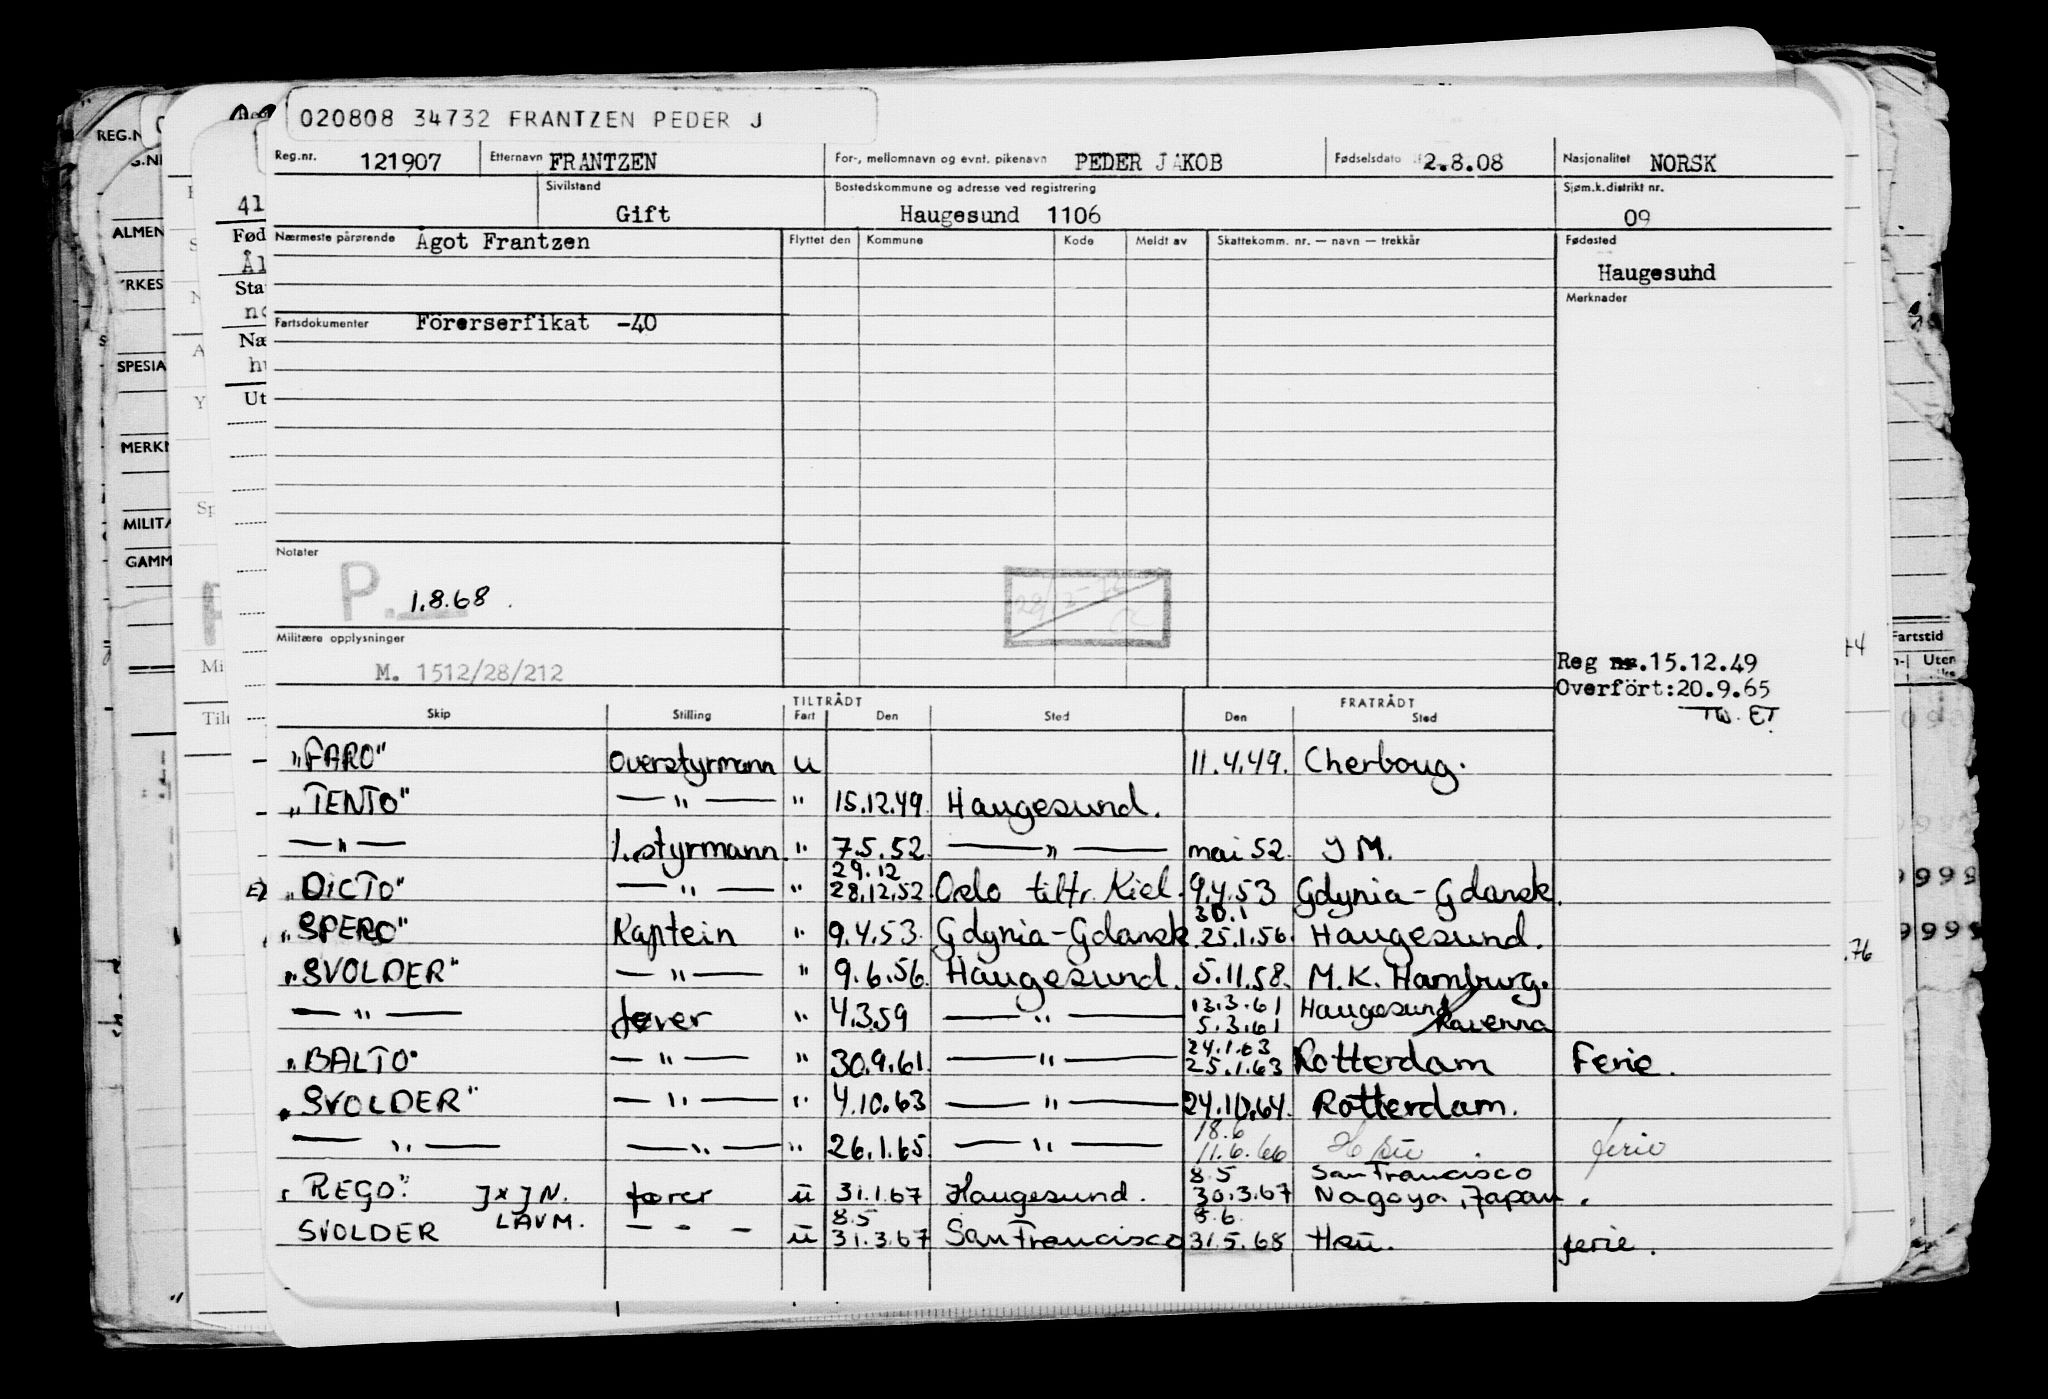 020808 34732 FRANTZEN PEDER J
Reg.nr. 121907 Etternavn FRANTZEN For-, mellomnavn og evnt. pikenavn PEDER JAKOB Fødselsdato 2.8.08 Nasjonalitet NORSK
Sivilstand Gift Bostedskommune og adresse ved registrering Haugesund 1106 Sjøm.k.distrikt nr. 09
Nærmeste pårørende Ågot Frantzen Flyttet den Kommune Kode Meldt av Skattekomm. nr. — navn — trekkår Fødested
Haugesund
Merknader
Fartsdokumenter Förerserfikat -40
Notater
P. 1.8.68.
Militære opplysninger
M. 1512/28/212
Reg nr.15.12.49
Overfört:20.9.65
TW. ET.
TILTRÅDT FRATRÅDT
Skip Stilling Fart Den Sted Den Sted
"FARO" Overstyrmann u 11.4.49. Cherboug.
"TENTO" — " — " 15.12.49. Haugesund.
— " — 1.styrmann. " 7.5.52. — " — mai 52. J M.
29.12
"DICTO" — " — " 28.12.52 Oslo tiltr. Kiel. 9.4.53 Gdynia-Gdansk.
30.1
"SPERO" Kaptein " 9.4.53. Gdynia-Gdansk 25.1.56. Haugesund.
"SVOLDER" — " — " 9.6.56. Haugesund. 5.11.58. M.K. Hamburg.
13.3.61 Haugesund
— " — fører " 4.3.59 — " — 5.3.61 Ravenna
24.1.63
"BALTO" — " — " 30.9.61. — " — 25.1.63 Rotterdam Ferie.
"SVOLDER" — " — " 4.10.63 — " — 24.10.64. Rotterdam.
18.6
— " — — " — " 26.1.65. — " — 11.6.66 ferie
8.5 San Francisco
"REGO" JxJN. fører ü 31.1.67 Haugesund. 30.3.67 Nagoya, Japan.
LAVM. 8.5 5.6.
SVOLDER — - — ü 31.3.67 San Francisco 31.5.68 Haü. ferie.
REG.N
G.NR
ALMEN
YRKES
SPESIA
MERKN
MILITÆ
GAMM
41
Fød
Ål
Sta
no
Næ
hu
Ut
Sp
Mi
Tilt
Fartstid
Uten
.76